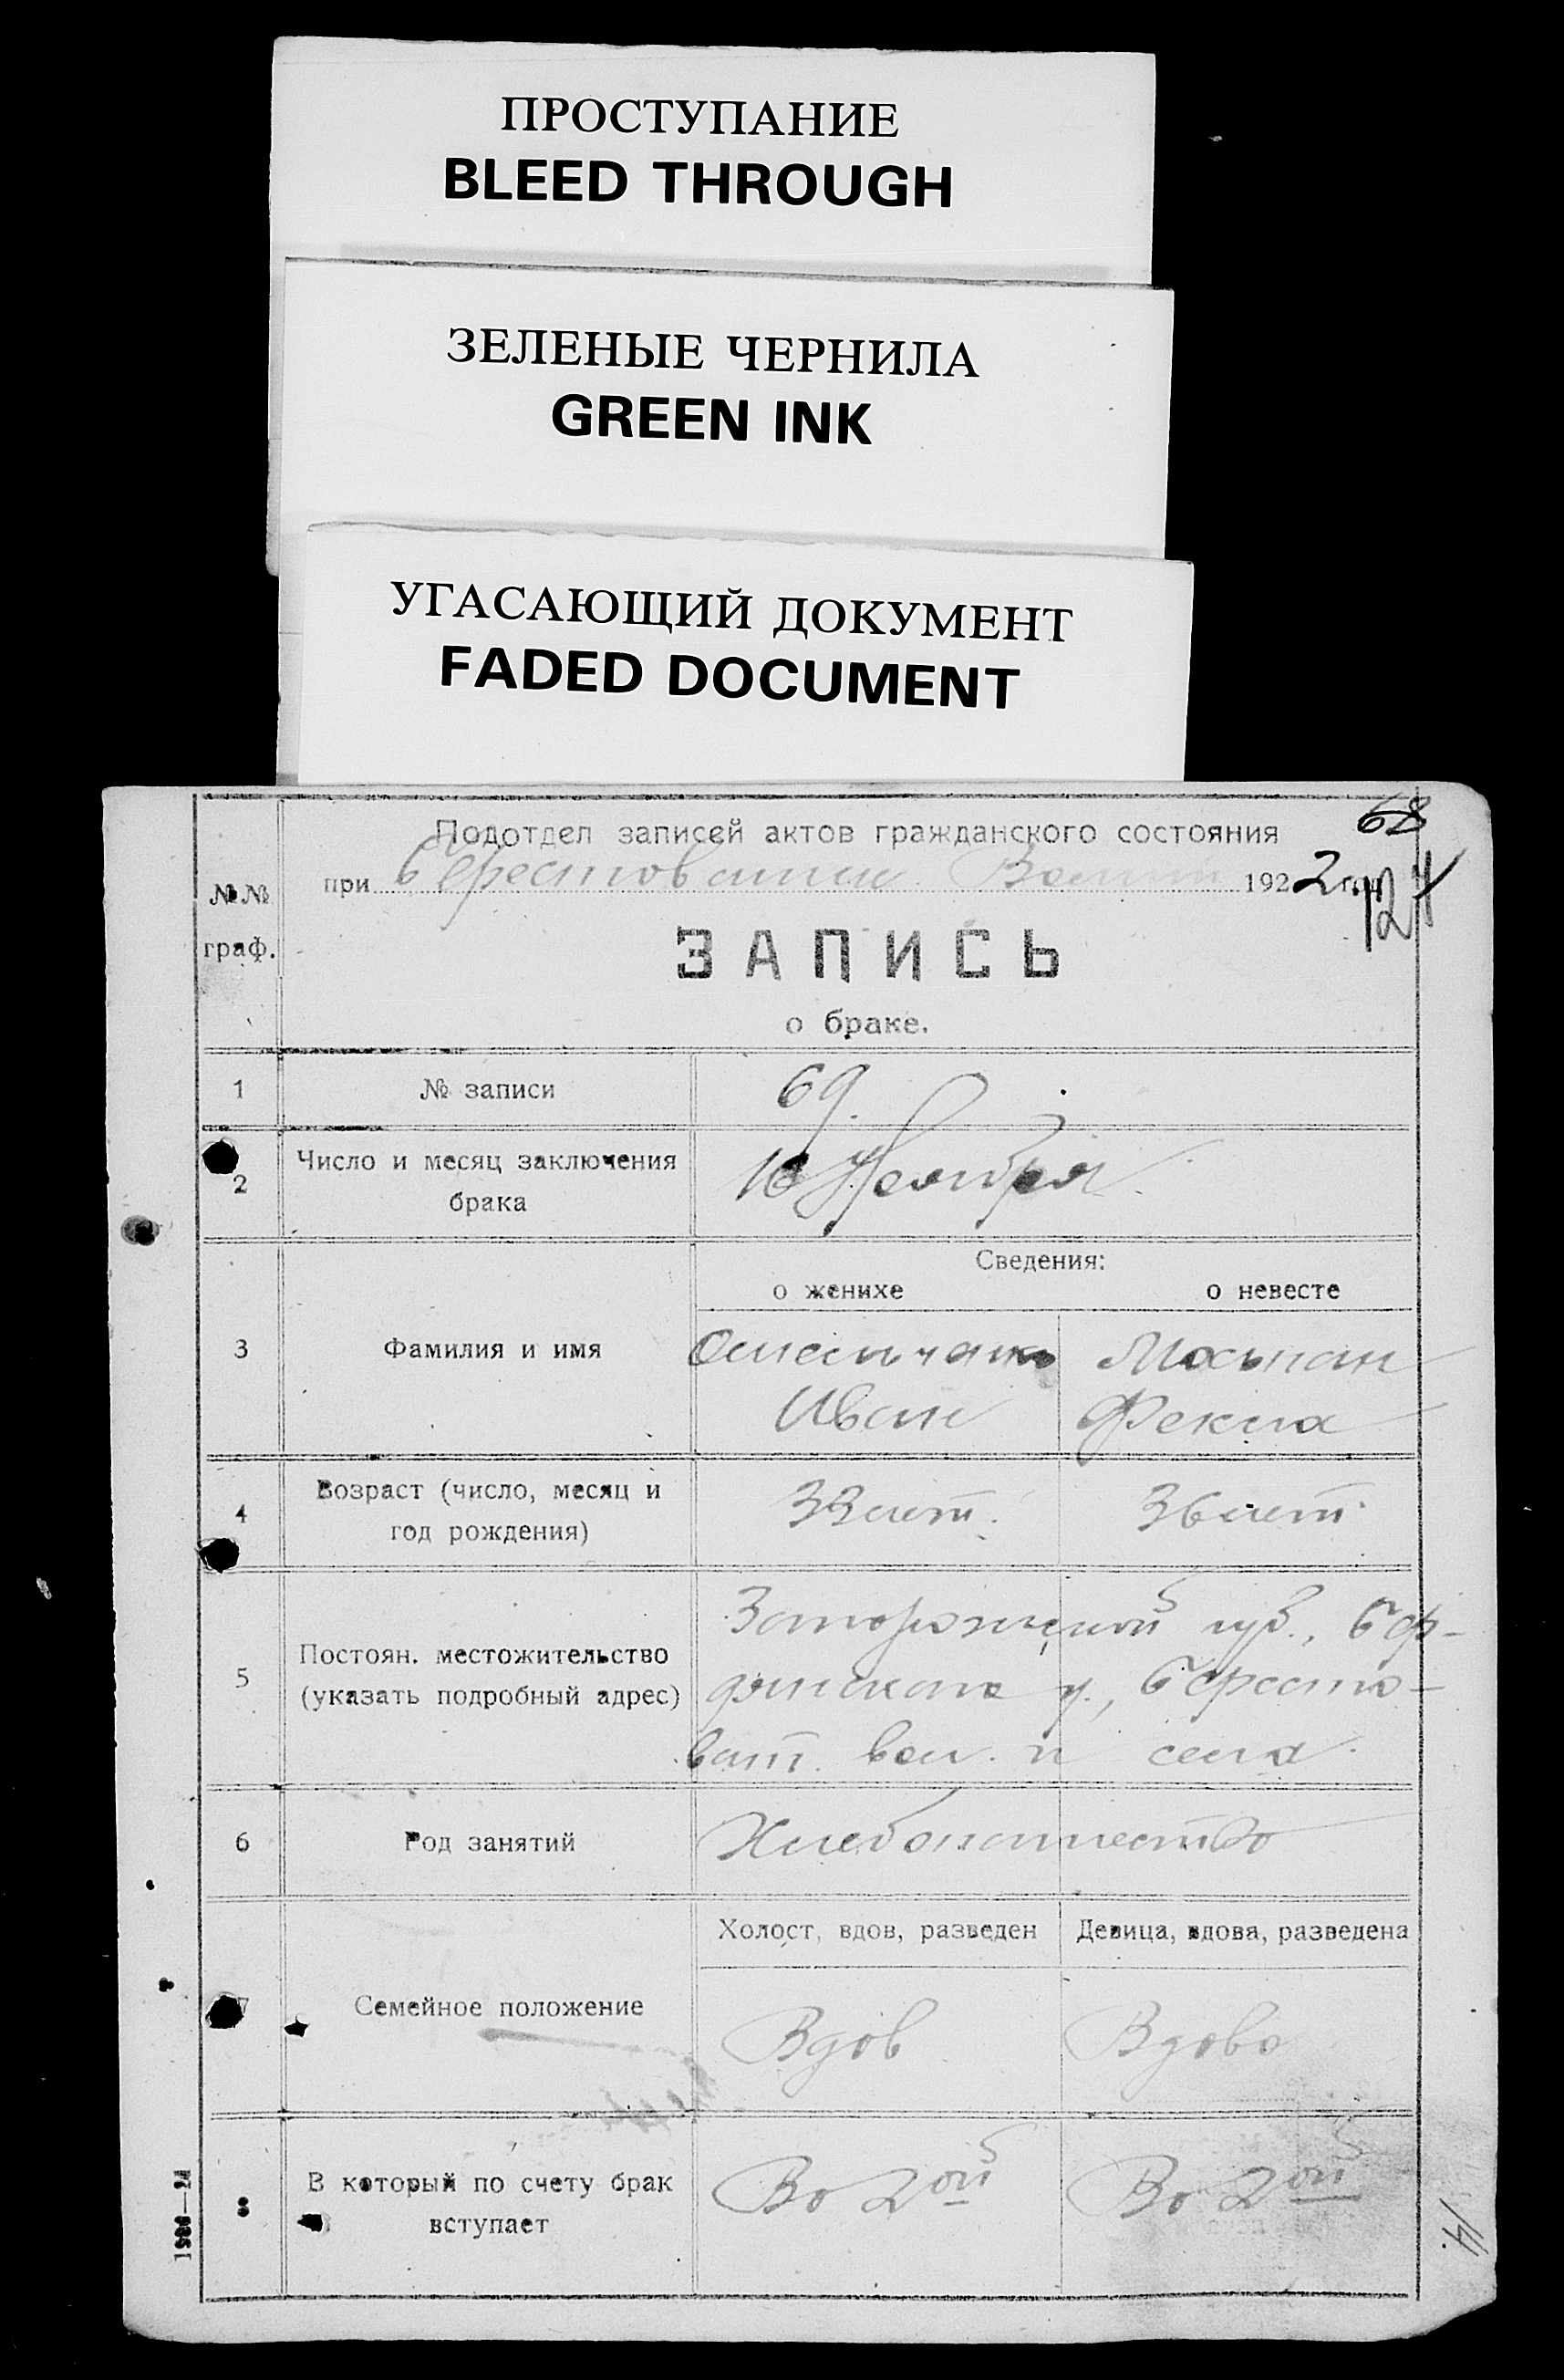 ПРОСТУПАНИЕ
BLEED THROUGH
ЗЕЛЕНЫЕ ЧЕРНИЛА
GREEN INK
УГАСАЮЩИЙ ДОКУМЕНТ
FADED DOCUMENT
68
Подотдел записей актов гражданского состояния
№№ граф.
при 1922 год
124
ЗАПИСЬ
о браке.
1 № записи 69.
2 Число и месяц заключения брака
16 Ноября
Сведения:
о женихе о невесте
3 Фамилия и имя
Омельчанко Мосьпан
Иван Фекла
4 Возраст (число, месяц и год рождения)
33 лет. 36 лет.
5 Постоян. местожительство (указать подробный адрес)
Запорожской губ., Бер-
дянского у., Бересто-
ват. вол. и села.
6 Род занятий
Хлебопашество
Холост, вдов, разведен Девица, вдова, разведена
7 Семейное положение
Вдов Вдова
8 В который по счету брак вступает
Во 2ой Во 2ой
14.